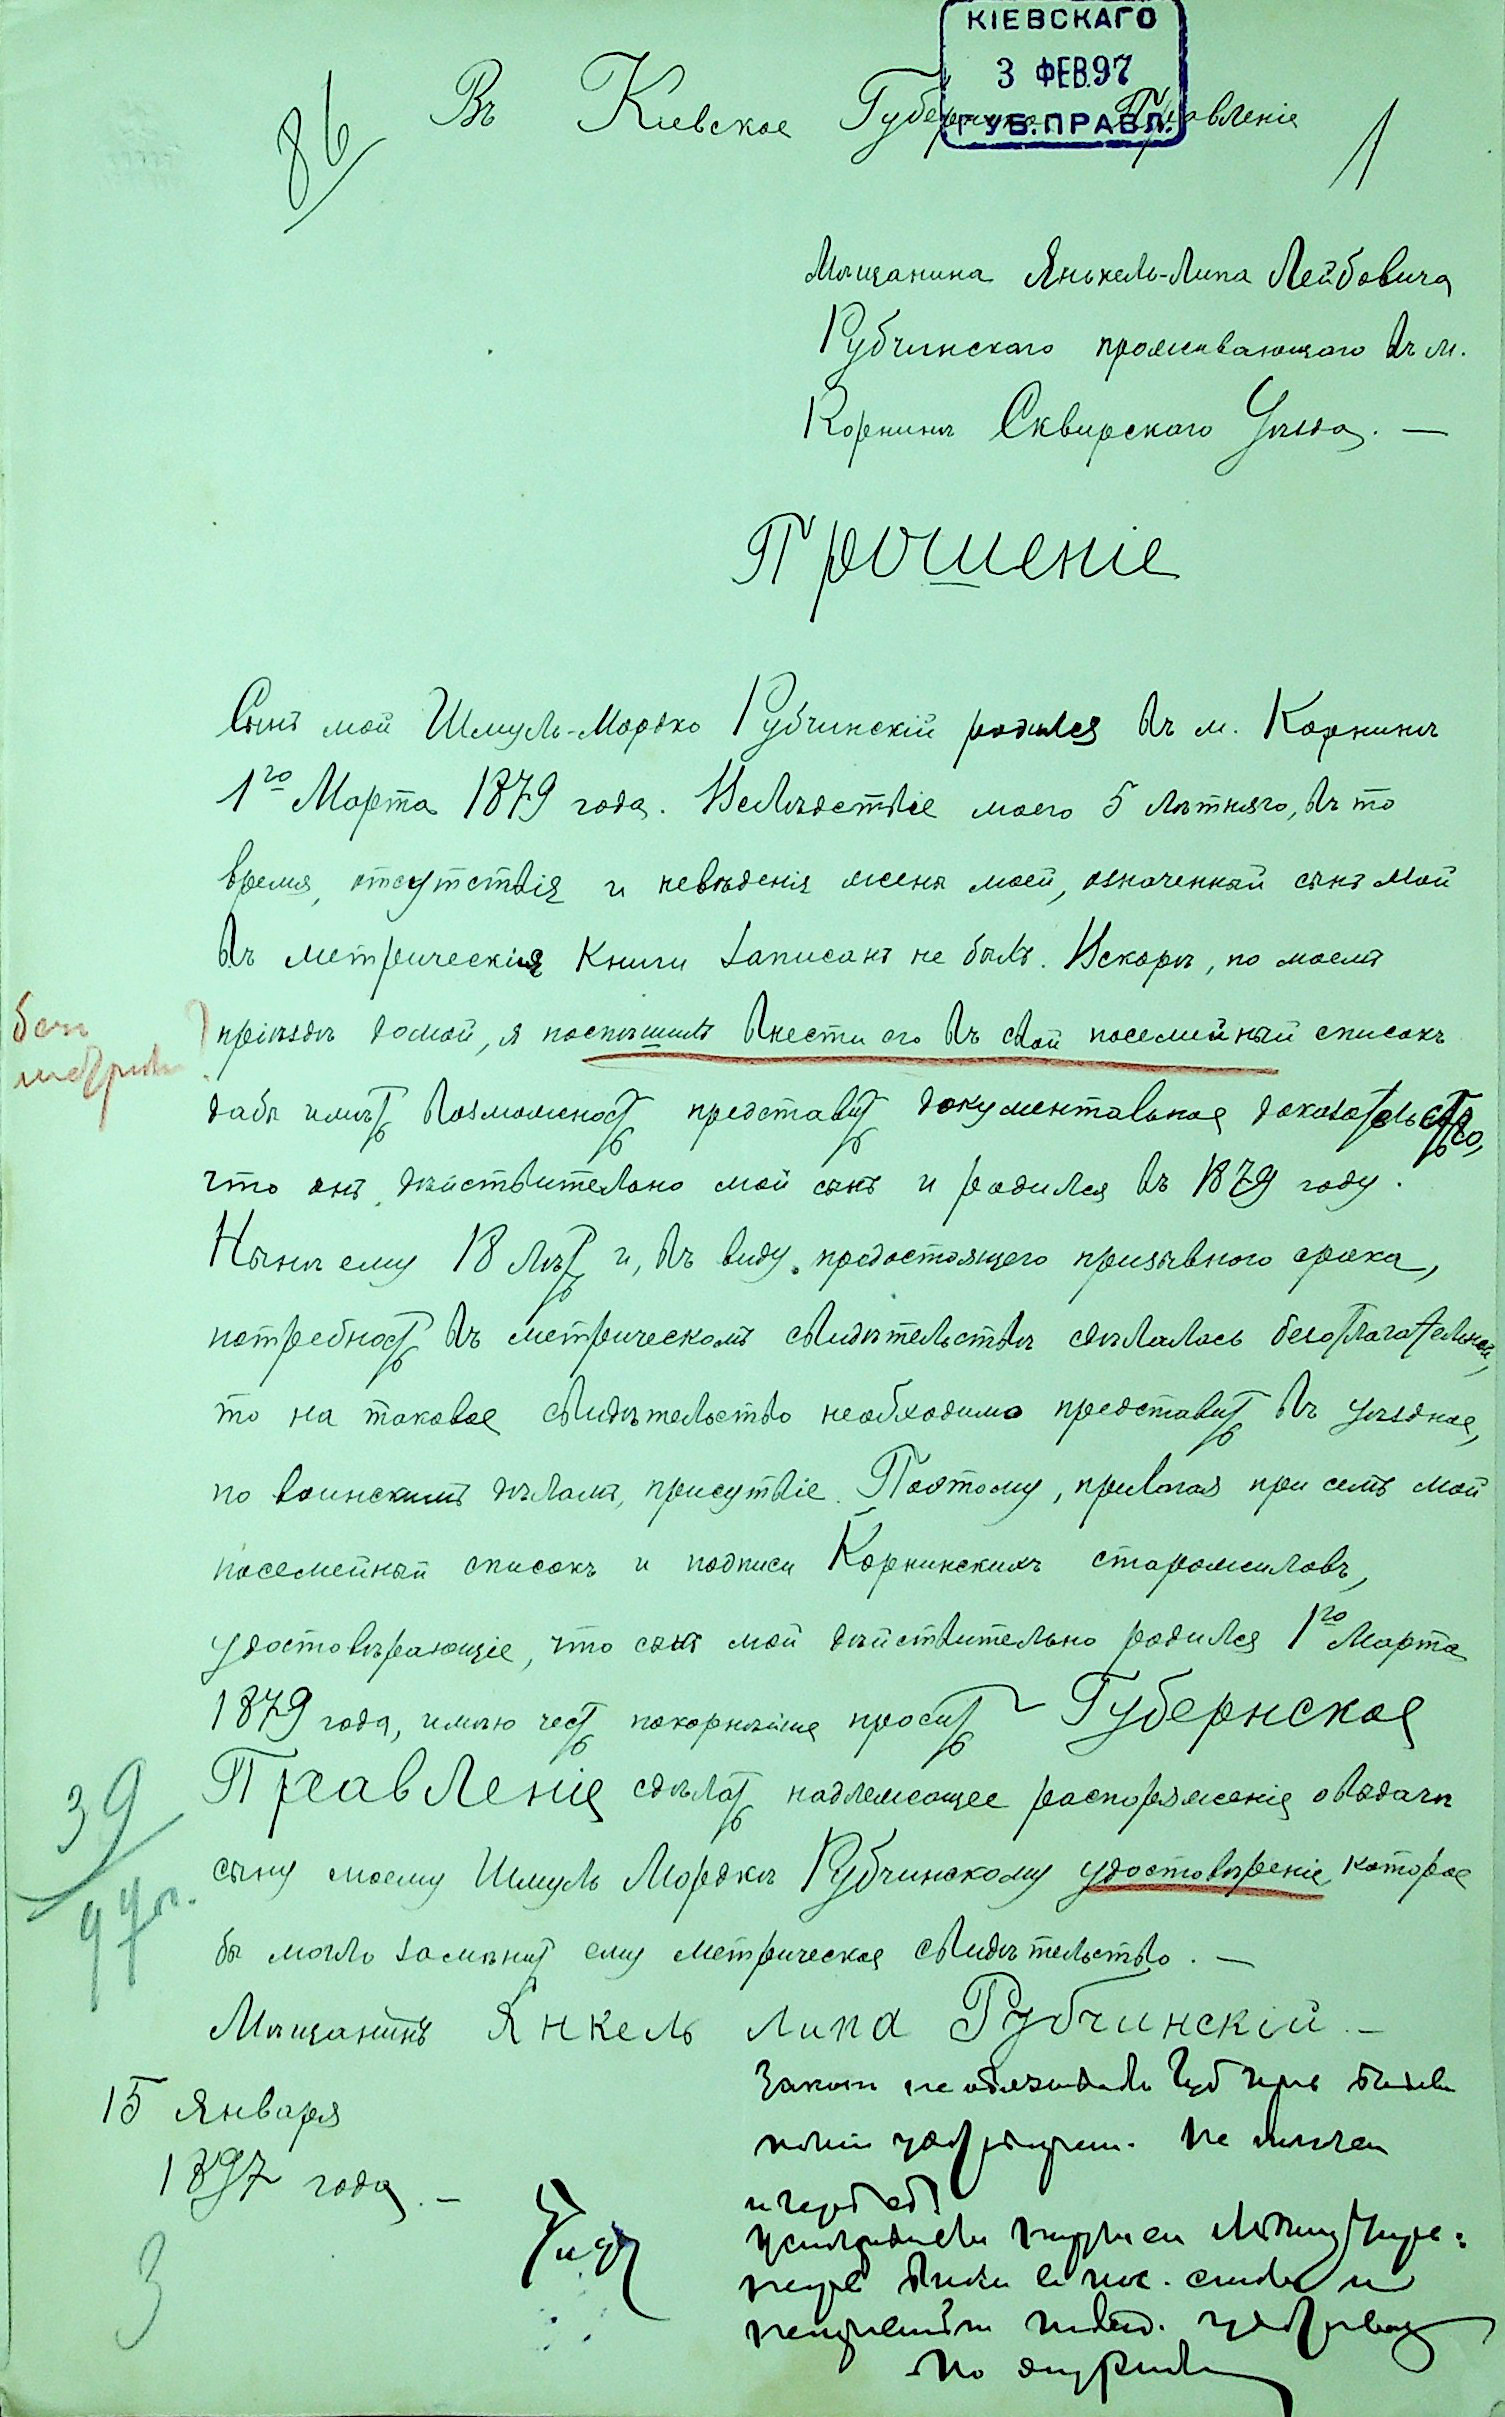 КІЕВСКАГО
3 ФЕВ.97
ГУБ.ПРАВЛ.
86
Въ Кіевское Губернское Правленіе
1
Мѣщанина Янькель-Липа Лейбовича
Рубчинскаго проживающаго въ м.
Корнинѣ Сквирскаго Уѣзда. —
Прошеніе
Сынъ мой Шмуль-Мордко Рубчинскій родился въ м. Корнинѣ
1го Марта 1879 года. Вслѣдствіе моего 5 лѣтняго, въ то
время, отсутствія и невѣденія жены моей, означенный сынъ мой
въ метрическія книги записанъ не былъ. Вскорѣ, по моемъ
пріѣздѣ домой, я поспѣшилъ внести его въ свой посемейный списокъ
дабы имѣть возможность представить документальное доказательство,
что онъ дѣйствительно мой сынъ и родился въ 1879 году.
Нынѣ ему 18 лѣтъ и, въ виду предстоящего призывного срока,
потребность въ метрическомъ свидѣтельствѣ сдѣлалась безотлагательной,
то на таковое свидѣтельство необходимо представить въ уѣздное,
по воинскимъ дѣламъ, присутвіе. Поэтому, прилагая при семъ мой
посемейный списокъ и подписи Корнинскихъ старожиловъ,
удостовѣряющіе, что сынъ мой дѣйствительно родился 1го Марта
1879 года, имѣю честь покорнѣйше просить Губернское
Правленіе сдѣлать надлежащее распоряженіе о выдачѣ
сыну моему Шмуль Мордкѣ Рубчинскому удостовѣреніе, которое
бы могло замѣнить ему метрическое свидѣтельство. —
Мѣщанинъ Янкель Липа Рубчинскій —
15 Января
1897 года. —
39
97
3